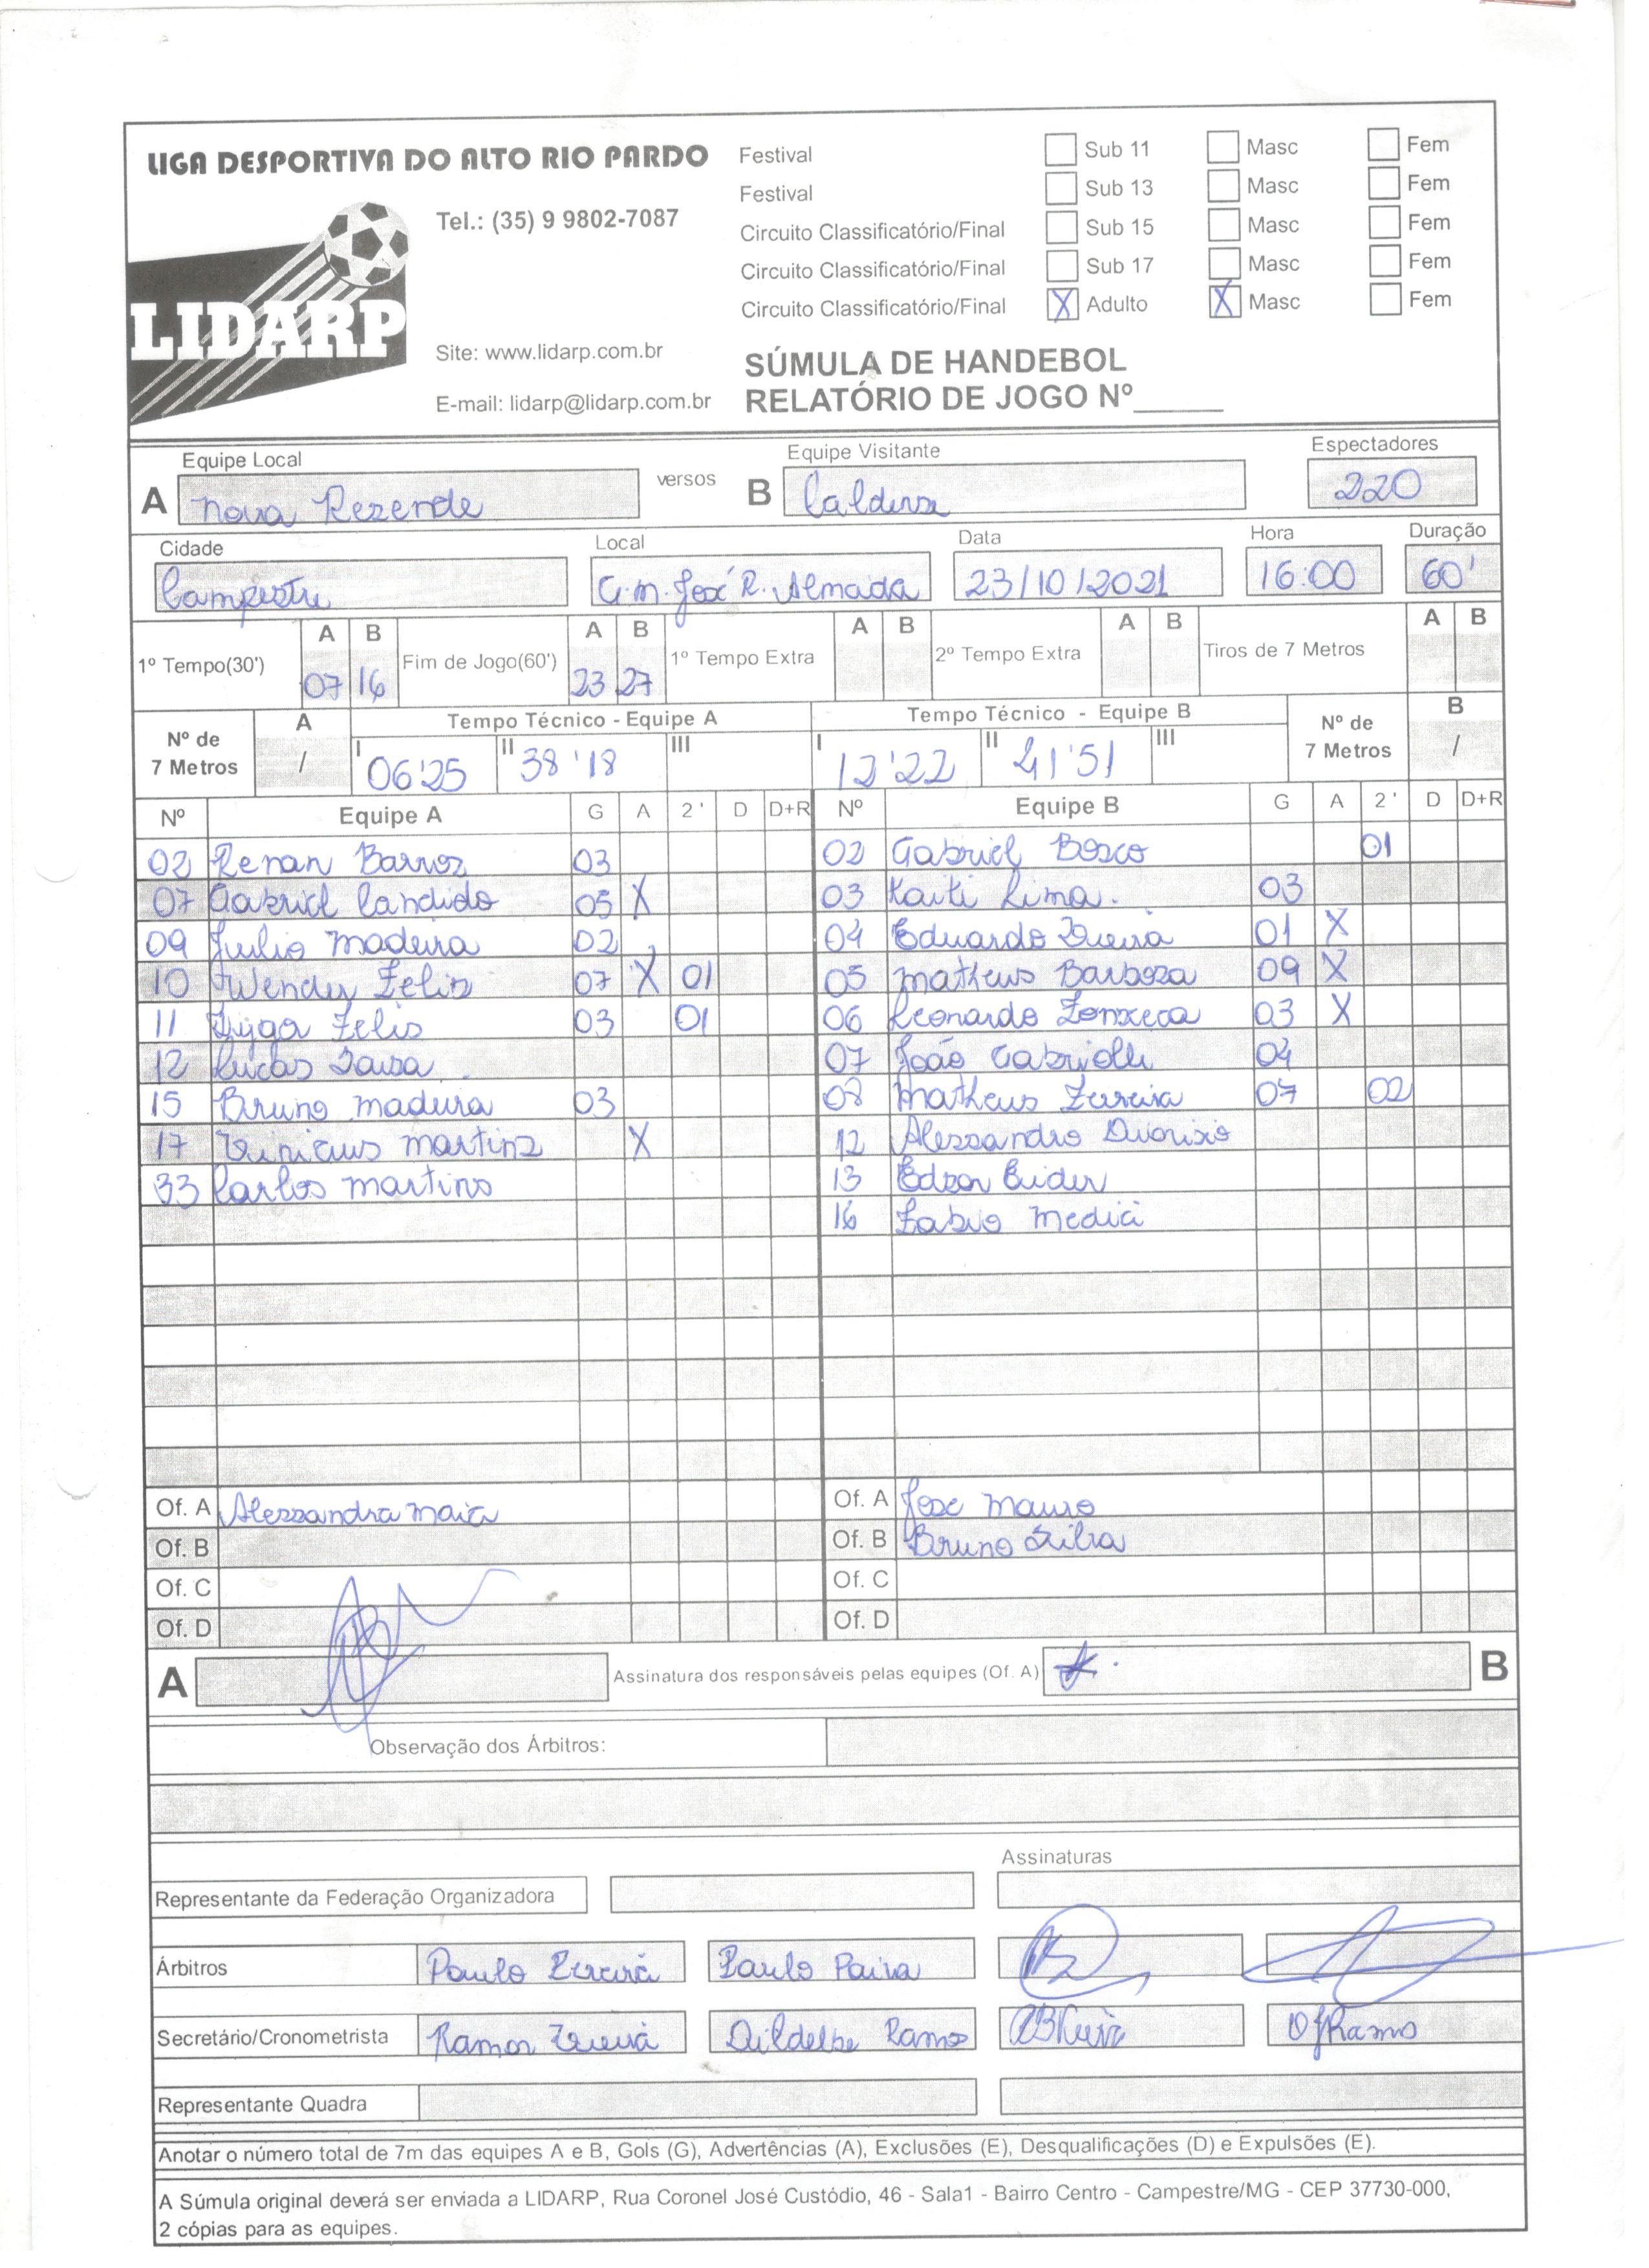 LIGA DESPORTIVA DO ALTO RIO PARDO
Tel.: (35) 9 9802-7087
LIDARP
Site: www.lidarp.com.br
E-mail: lidarp@lidarp.com.br
Festival Sub 11 Masc Fem
Festival Sub 13 Masc Fem
Circuito Classificatório/Final Sub 15 Masc Fem
Circuito Classificatório/Final Sub 17 Masc Fem
Circuito Classificatório/Final X Adulto X Masc Fem
SÚMULA DE HANDEBOL
RELATÓRIO DE JOGO Nº_____
Equipe Local Equipe Visitante Espectadores
A Nova Rezende versos B Caldense 220
Cidade Local Data Hora Duração
Campestre G.M. José R. Almada 23/10/2021 16:00 60'
A B A B A B A B A B
1º Tempo(30') 07 16 Fim de Jogo(60') 23 27 1º Tempo Extra 2º Tempo Extra Tiros de 7 Metros
Nº de 7 Metros A / Tempo Técnico - Equipe A Tempo Técnico - Equipe B Nº de 7 Metros B /
I 06'25 II 38'18 III I 12'22 II 41'51 III
Nº Equipe A G A 2' D D+R Nº Equipe B G A 2' D D+R
02 Renan Barros 03 02 Gabriel Bosco 01
07 Gabriel Candido 05 X 03 Kaiti Lima. 03
09 Julio Madeira 02 04 Eduardo Vieira 01 X
10 Wendy Felix 07 X 01 05 Matheus Barboza 09 X
11 Felix 03 01 06 Leonardo Fonseca 03 X
12 Lucas Sousa 07 João Gabrielli 04
15 Bruno Madeira 03 08 Matheus Ferreira 07 02
17 Vinicius Martins X 12 Alessandro Dionisio
33 Carlos Martins 13 Edson
16 Fabio Medici
Of. A Alessandra Maia Of. A Jose Mauro
Of. B Of. B Bruno Silva
Of. C Of. C
Of. D Of. D
A Assinatura dos responsáveis pelas equipes (Of. A) B
Observação dos Árbitros:
Assinaturas
Representante da Federação Organizadora
Árbitros Paulo Pereira Paulo Paiva
Secretário/Cronometrista Ramon Vieira Ramos
Representante Quadra
Anotar o número total de 7m das equipes A e B, Gols (G), Advertências (A), Exclusões (E), Desqualificações (D) e Expulsões (E).
A Súmula original deverá ser enviada a LIDARP, Rua Coronel José Custódio, 46 - Sala1 - Bairro Centro - Campestre/MG - CEP 37730-000,
2 cópias para as equipes.